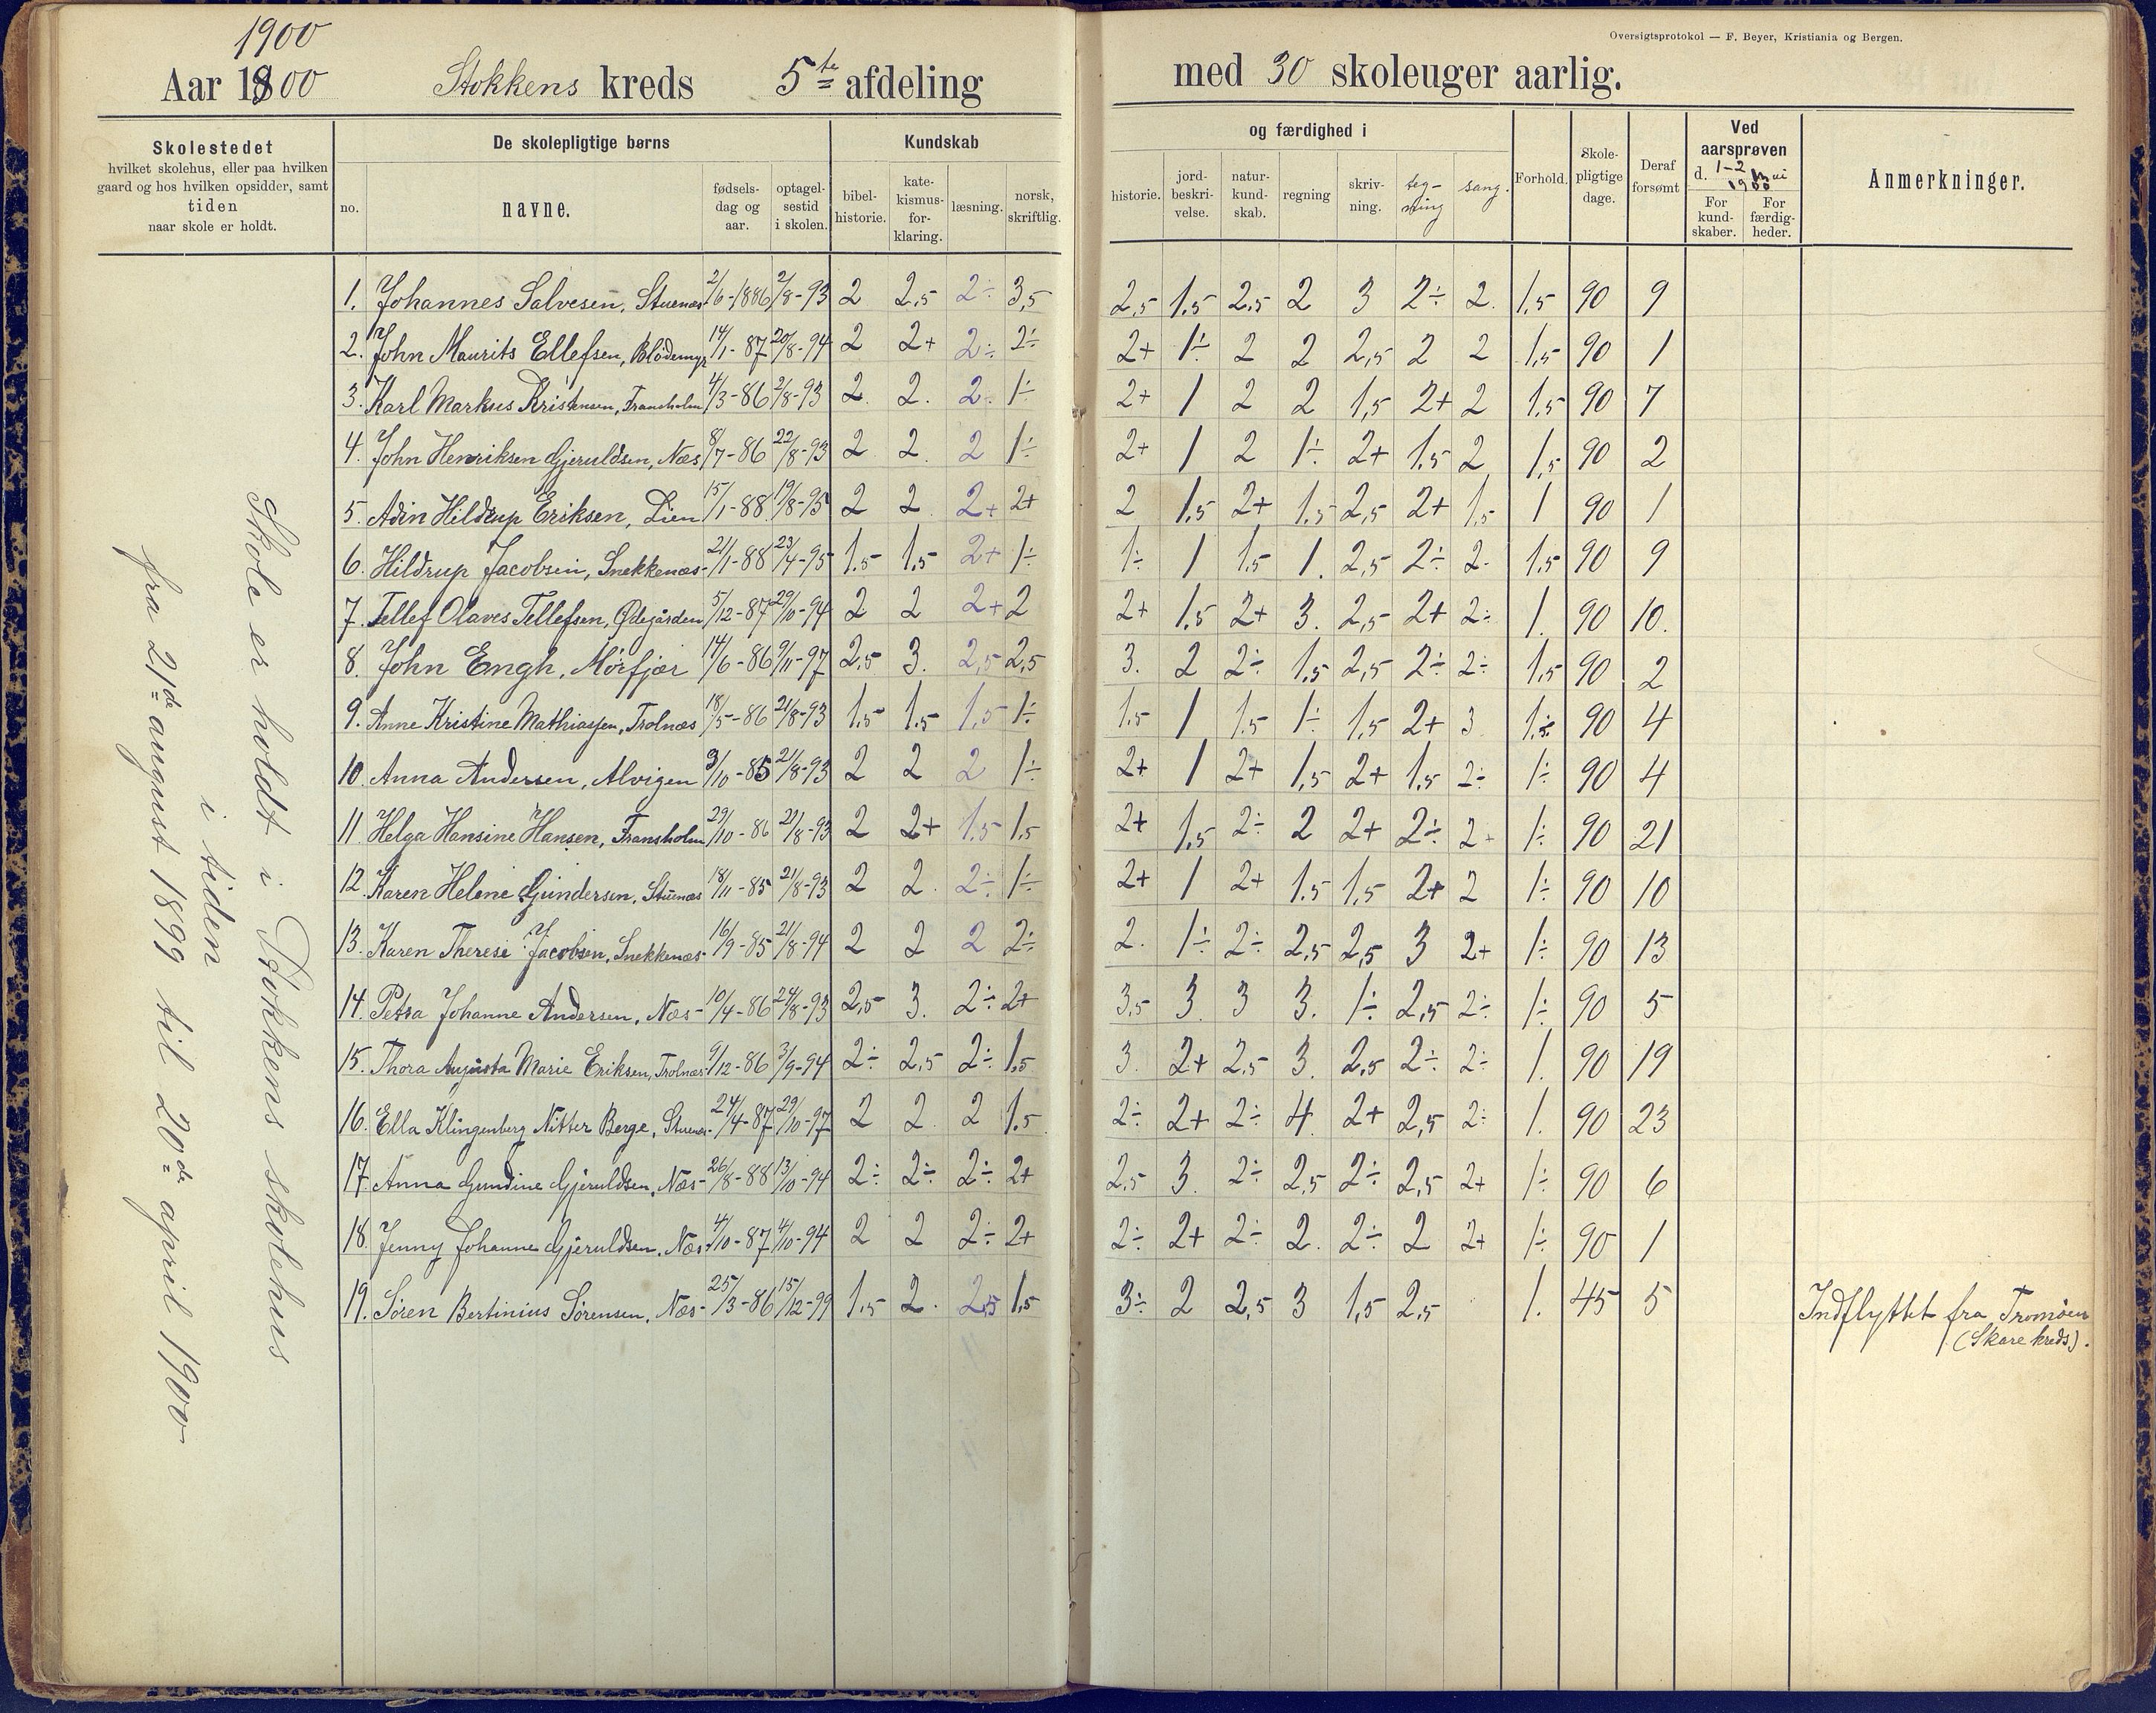 1900
Aar 1800 Stokkens kreds 5te afdeling
med 30 skoleuger aarlig.
Oversigtsprotokol — F. Beyer, Kristiania og Bergen.
Skolestedet
hvilket skolehus, eller paa hvilken
gaard og hos hvilken opsidder, samt
tiden
naar skole er holdt.
De skolepligtige børns
no.
navne.
fødsels-
dag og
aar.
optagel-
sestid
i skolen.
Kundskab
bibel-
historie.
kate-
kismus-
for-
klaring.
læsning.
norsk,
skriftlig.
og færdighed i
historie.
jord-
beskri-
velse.
natur-
kund-
skab.
regning
skriv-
ning.
teg-
ning
sang.
Forhold.
Skole-
pligtige
dage.
Deraf
forsømt
Ved
aarsprøven
d. 1-2 mai
1900
For
kund-
skaber.
For
færdig-
heder.
Anmerkninger.
Skole er holdt i Stokkens skolehus
i tiden
fra 21de august 1899 til 20de april 1900
1. Johannes Salvesen, Stuenæs 2/6-1886 2/8-93 2 2,5 2÷ 3,5 2,5 1.5 2,5 2 3 2÷ 2. 1,5 90 9
2. John Maurits Ellefsen, Blödemyr 14/1-87 20/8-94 2 2+ 2÷ 2÷ 2+ 1÷ 2 2 2,5 2 2 1,5 90 1
3. Karl Markus Kristensen, Fransholm 4/3-86 2/8-93 2. 2. 2÷ 1÷ 2+ 1 2 2 1,5 2+ 2 1,5 90 7
4. John Henriksen Gjeruldsen, Næs 8/7-86 22/8-93 2 2. 2 1÷ 2+ 1 2 1÷ 2+ 1,5 2 1,5 90 2
5. Adin Hildrup Eriksen, Lien 15/1-88 19/8-95 2 2 2+ 2+ 2 1,5 2+ 1.5 2,5 2+ 1,5 1 90 1
6. Hildrup Jacobsen, Snekkenæs 21/1-88 23/4-95 1.5 1.5 2+ 1÷ 1÷ 1 1.5 1. 2,5 2÷ 2- 1,5 90 9
7. Tellef Olaves Tellefsen, Ødegården 5/12-87 29/10-94 2 2 2+ 2 2+ 1.5 2+ 3. 2,5 2+ 2÷ 1. 90 10.
8. John Engh, Mörfjær 14/6-86 9/11-97 2,5 3. 2,5 2,5 3. 2 2÷ 1.5 2,5 2÷ 2÷ 1,5 90 2
9. Anne Kristine Mathiassen, Trolnæs 18/5-86 21/8-93 1.5 1.5 1.5 1÷ 1.5 1 1.5 1÷ 1,5 2+ 3 1÷ 90 4
10. Anna Andersen, Alvigen 9/10-85 21/8-93 2 2 2 1÷ 2+ 1 2+ 1,5 2+ 1.5 2÷ 1÷ 90 4
11. Helga Hansine Hansen, Fransholm 29/10-86 21/8-93 2 2+ 1.5 1.5 2+ 1,5 2÷ 2 2+ 2÷ 2+ 1÷ 90 21
12. Karen Helene Gundersen, Stuenæs 18/11-85 21/8-93 2 2. 2÷ 1÷ 2+ 1 2+ 1.5 1,5 2+ 2 1÷ 90 10
13. Karen Therese Jacobsen, Snekkenæs 16/9-85 21/8-94 2 2 2 2÷ 2. 1÷ 2÷ 2,5 2,5 3 2+ 1÷ 90 13
14. Petra Johanne Andersen, Næs- 10/4-86 24/8-93 2,5 3. 2÷ 2+ 3,5 3 3 3. 1÷ 2,5 2÷ 1÷ 90 5
15. Thora Augusta Marie Eriksen, Trolnæs 9/12-86 3/9-94 2÷ 2,5 2÷ 1.5 3. 2+ 2,5 3. 2,5 2÷ 2÷ 1. 90 19
16. Ella Klingenberg Nitter Berge, Stuenæs 24/4-87 29/10-97 2 2. 2 1.5 2÷ 2+ 2÷ 4 2+ 2,5 2÷ 1. 90 23
17. Anna Gundine Gjeruldsen, Næs- 26/8-88 13/10-94 2÷ 2÷ 2÷ 2+ 2,5 3. 2÷ 2,5 2÷ 2,5 2+ 1÷ 90 6
18. Jenny Johanne Gjeruldsen, Næs- 4/10-87 4/10-94 2 2 2÷ 2+ 2÷ 2+ 2÷ 2. 2÷ 2 2+ 1÷ 90 1
19. Sören Bertinius Sörensen, Næs- 25/3-86 15/12-99 1.5 2. 2,5 1,5 3÷ 2 2,5 3 1,5 2,5 1. 45 5 Indflyttet fra Tromöen
(Skare kreds).